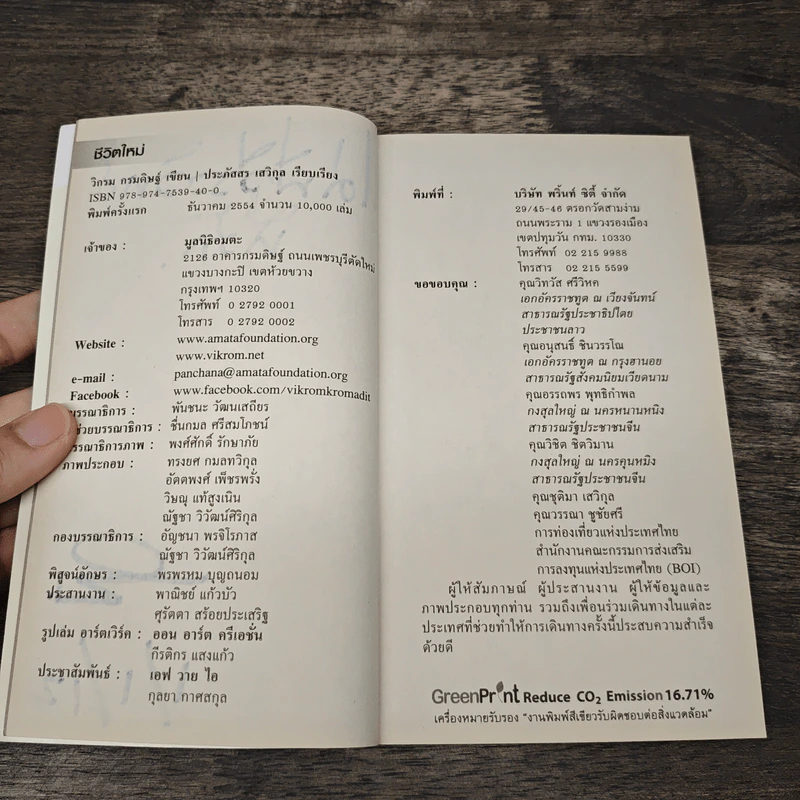 ชีวิตใหม่
วิกรม กรมดิษฐ์ เขียน | ประภัสสร เสวิกุล เรียบเรียง
ISBN 978-974-7539-40-0
พิมพ์ครั้งแรก ธันวาคม 2554 จำนวน 10,000 เล่ม
เจ้าของ : มูลนิธิอมตะ
2126 อาคารกรมดิษฐ์ ถนนเพชรบุรีตัดใหม่
แขวงบางกะปิ เขตห้วยขวาง
กรุงเทพฯ 10320
โทรศัพท์ 0 2792 0001
โทรสาร 0 2792 0002
Website : www.amatafoundation.org
www.vikrom.net
e-mail : panchana@amatafoundation.org
Facebook : www.facebook.com/vikromkromadit
บรรณาธิการ : พันชนะ วัฒนเสถียร
ช่วยบรรณาธิการ : ชื่นกมล ศรีสมโภชน์
บรรณาธิการภาพ : พงศ์ศักดิ์ รักษาภัย
ภาพประกอบ : ทรงยศ กมลทวิกุล
อัตตพงศ์ เพ็ชรพรั่ง
วิษณุ แท้สูงเนิน
ณัฐชา วิวัฒน์ศิริกุล
กองบรรณาธิการ : อัญชนา พรจิโรภาส
ณัฐชา วิวัฒน์ศิริกุล
พิสูจน์อักษร : พรพรหม บุญถนอม
ประสานงาน : พาณิชย์ แก้วบัว
ศุรัตดา สร้อยประเสริฐ
รูปเล่ม อาร์ตเวิร์ค : ออน อาร์ต ครีเอชั่น
กีรติกร แสงแก้ว
ประชาสัมพันธ์ : เอฟ วาย ไอ
กุลยา กาศสกุล
พิมพ์ที่ : บริษัท พริ้นท์ ซิตี้ จำกัด
29/45-46 ตรอกวัดสามง่าม
ถนนพระราม 1 แขวงรองเมือง
เขตปทุมวัน กทม. 10330
โทรศัพท์ 02 215 9988
โทรสาร 02 215 5599
ขอขอบคุณ : คุณวิทวัส ศรีวิหค
เอกอัครราชทูต ณ เวียงจันทน์
สาธารณรัฐประชาธิปไตย
ประชาชนลาว
คุณอนุสนธิ์ ชินวรรโณ
เอกอัครราชทูต ณ กรุงฮานอย
สาธารณรัฐสังคมนิยมเวียดนาม
คุณอรรถพร พุทธิกำพล
กงสุลใหญ่ ณ นครหนานหนิง
สาธารณรัฐประชาชนจีน
คุณวิชิต ชิตวิมาน
กงสุลใหญ่ ณ นครคุนหมิง
สาธารณรัฐประชาชนจีน
คุณชุติมา เสวิกุล
คุณวรรณา ชูชัยศรี
การท่องเที่ยวแห่งประเทศไทย
สำนักงานคณะกรรมการส่งเสริม
การลงทุนแห่งประเทศไทย (BOI)
ผู้ให้สัมภาษณ์ ผู้ประสานงาน ผู้ให้ข้อมูลและ
ภาพประกอบทุกท่าน รวมถึงเพื่อนร่วมเดินทางในแต่ละ
ประเทศที่ช่วยทำให้การเดินทางครั้งนี้ประสบความสำเร็จ
ด้วยดี
GreenPrint Reduce CO₂ Emission 16.71%
เครื่องหมายรับรอง "งานพิมพ์สีเขียวรับผิดชอบต่อสิ่งแวดล้อม"